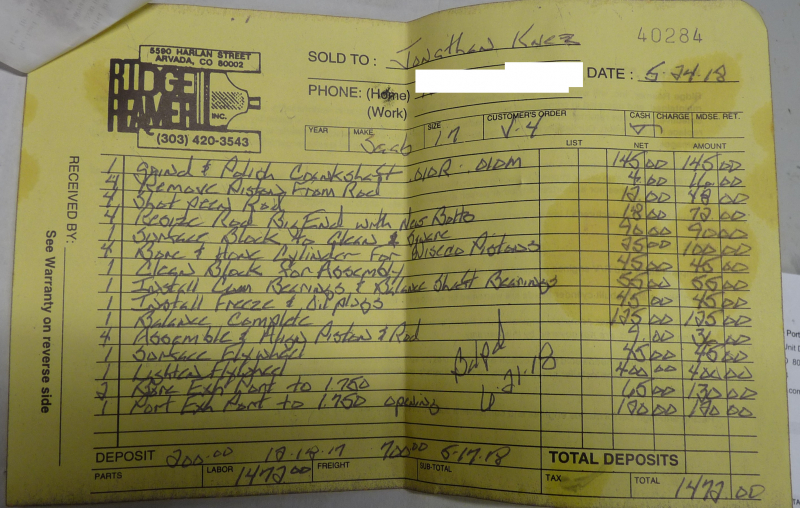 40284
5590 HARLAN STREET
ARVADA, CO 80002
RIDGE REAMER INC.
(303) 420-3543
SOLD TO: Jonathan Knez
PHONE: (Home)
(Work)
DATE: 5-24-18
YEAR MAKE Saab SIZE 17 CUSTOMER'S ORDER V-4 CASH CHARGE MDSE. RET.
LIST NET AMOUNT
1 Grind & Polish Crankshaft .010R .010M 145 00 145 00
4 Remove Piston From Rod 4 00 16 00
4 Shot peen Rod 12 00 48 00
4 Resize Rod Big End with New Bolts 18 00 72 00
1 Surface Block to Clean & Square 90 00 90 00
4 Bore & Hone Cylinder For Wiseco Pistons 25 00 100 00
1 Clean Block For Assembly 45 00 45 00
1 Install Cam Bearings & Balance Shaft Bearings 55 00 55 00
1 Install Freeze & Oil plugs 45 00 45 00
1 Balance Complete 175 00 175 00
4 Assemble & Align Piston & Rod 9 00 36 00
1 Surface Flywheel 45 00 45 00
1 Lighten Flywheel 400 00 400 00
2 Exh Port to 1.750 65 00 130 00
1 Port Exh Port to 1.750 opening
6-21-18
DEPOSIT 200.00 12-18-17 700.00 5-17-18 TOTAL DEPOSITS
PARTS LABOR 1472 00 FREIGHT SUB-TOTAL TAX TOTAL 1472 00
RECEIVED BY:
See Warranty on reverse side